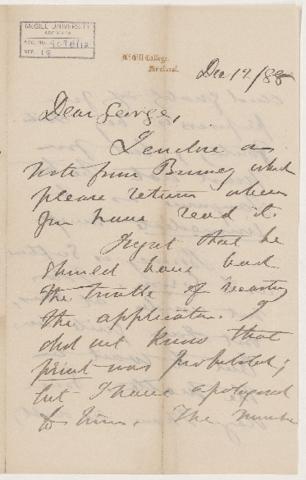 McGILL UNIVERSITY
ARCHIVES
ACC. NO.
REF.
McGill College,
Montreal.
Dec 19/88
Dear George,
I enclose a
note from Binney which
please return when
you have read it.
I regret that he
should have had
the trouble of recasting
the application. I
did not know that
print was prohibited;
but I have apologised
to him. The number